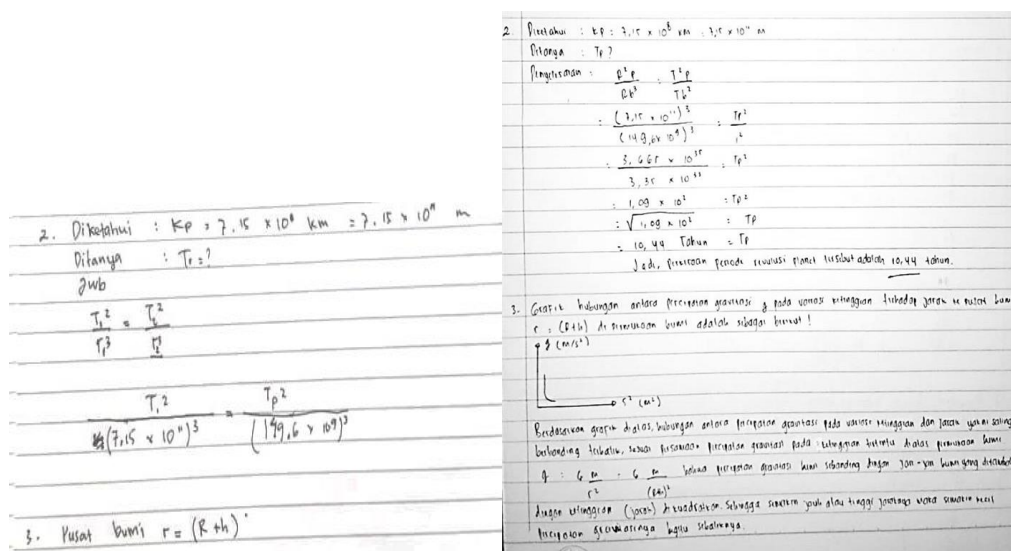 2. Diketahui : Kp = 7,15 × 10⁸ km = 7,15 × 10¹¹ m
Ditanya : Tp = ?
Jwb
T₁² / r₁³ = T₂² / r₂³
T₁² / (7,15 × 10¹¹)³ = Tp² / (149,6 × 10⁹)³
3. Pusat bumi r = (R + h)
2. Diketahui : Kp : 7,15 × 10⁸ km : 7,15 × 10¹¹ m
Ditanya : Tp ?
Penyelesaian : R³p / Rb³ : T²p / Tb²
: (7,15 × 10¹¹)³ / (149,6 × 10⁹)³ : Tp² / 1²
: 3,665 × 10³⁵ / 3,35 × 10³³ : Tp²
: 1,09 × 10² : Tp²
: √1,09 × 10² : Tp
: 10,44 Tahun = Tp
Jadi, perkiraan periode revolusi planet tersebut adalah 10,44 tahun.
3. Grafik hubungan antara percepatan gravitasi g pada variasi ketinggian terhadap jarak ke pusat bumi
r : (R+h) di permukaan bumi adalah sebagai berikut !
g (m/s²)
r² (m²)
Berdasarkan grafik diatas, hubungan antara percepatan gravitasi pada variasi ketinggian dan jarak yakni saling
berbanding terbalik, sesuai persamaan percepatan gravitasi pada ketinggian tertentu diatas permukaan bumi
g : G m / r² : G m / (R+h)² bahwa percepatan gravitasi bumi sebanding dengan jari-jari bumi yang
dengan ketinggian (jarak) di kuadratkan. Sehingga semakin jauh atau tinggi jaraknya maka semakin kecil
percepatan gravitasinya begitu sebaliknya.